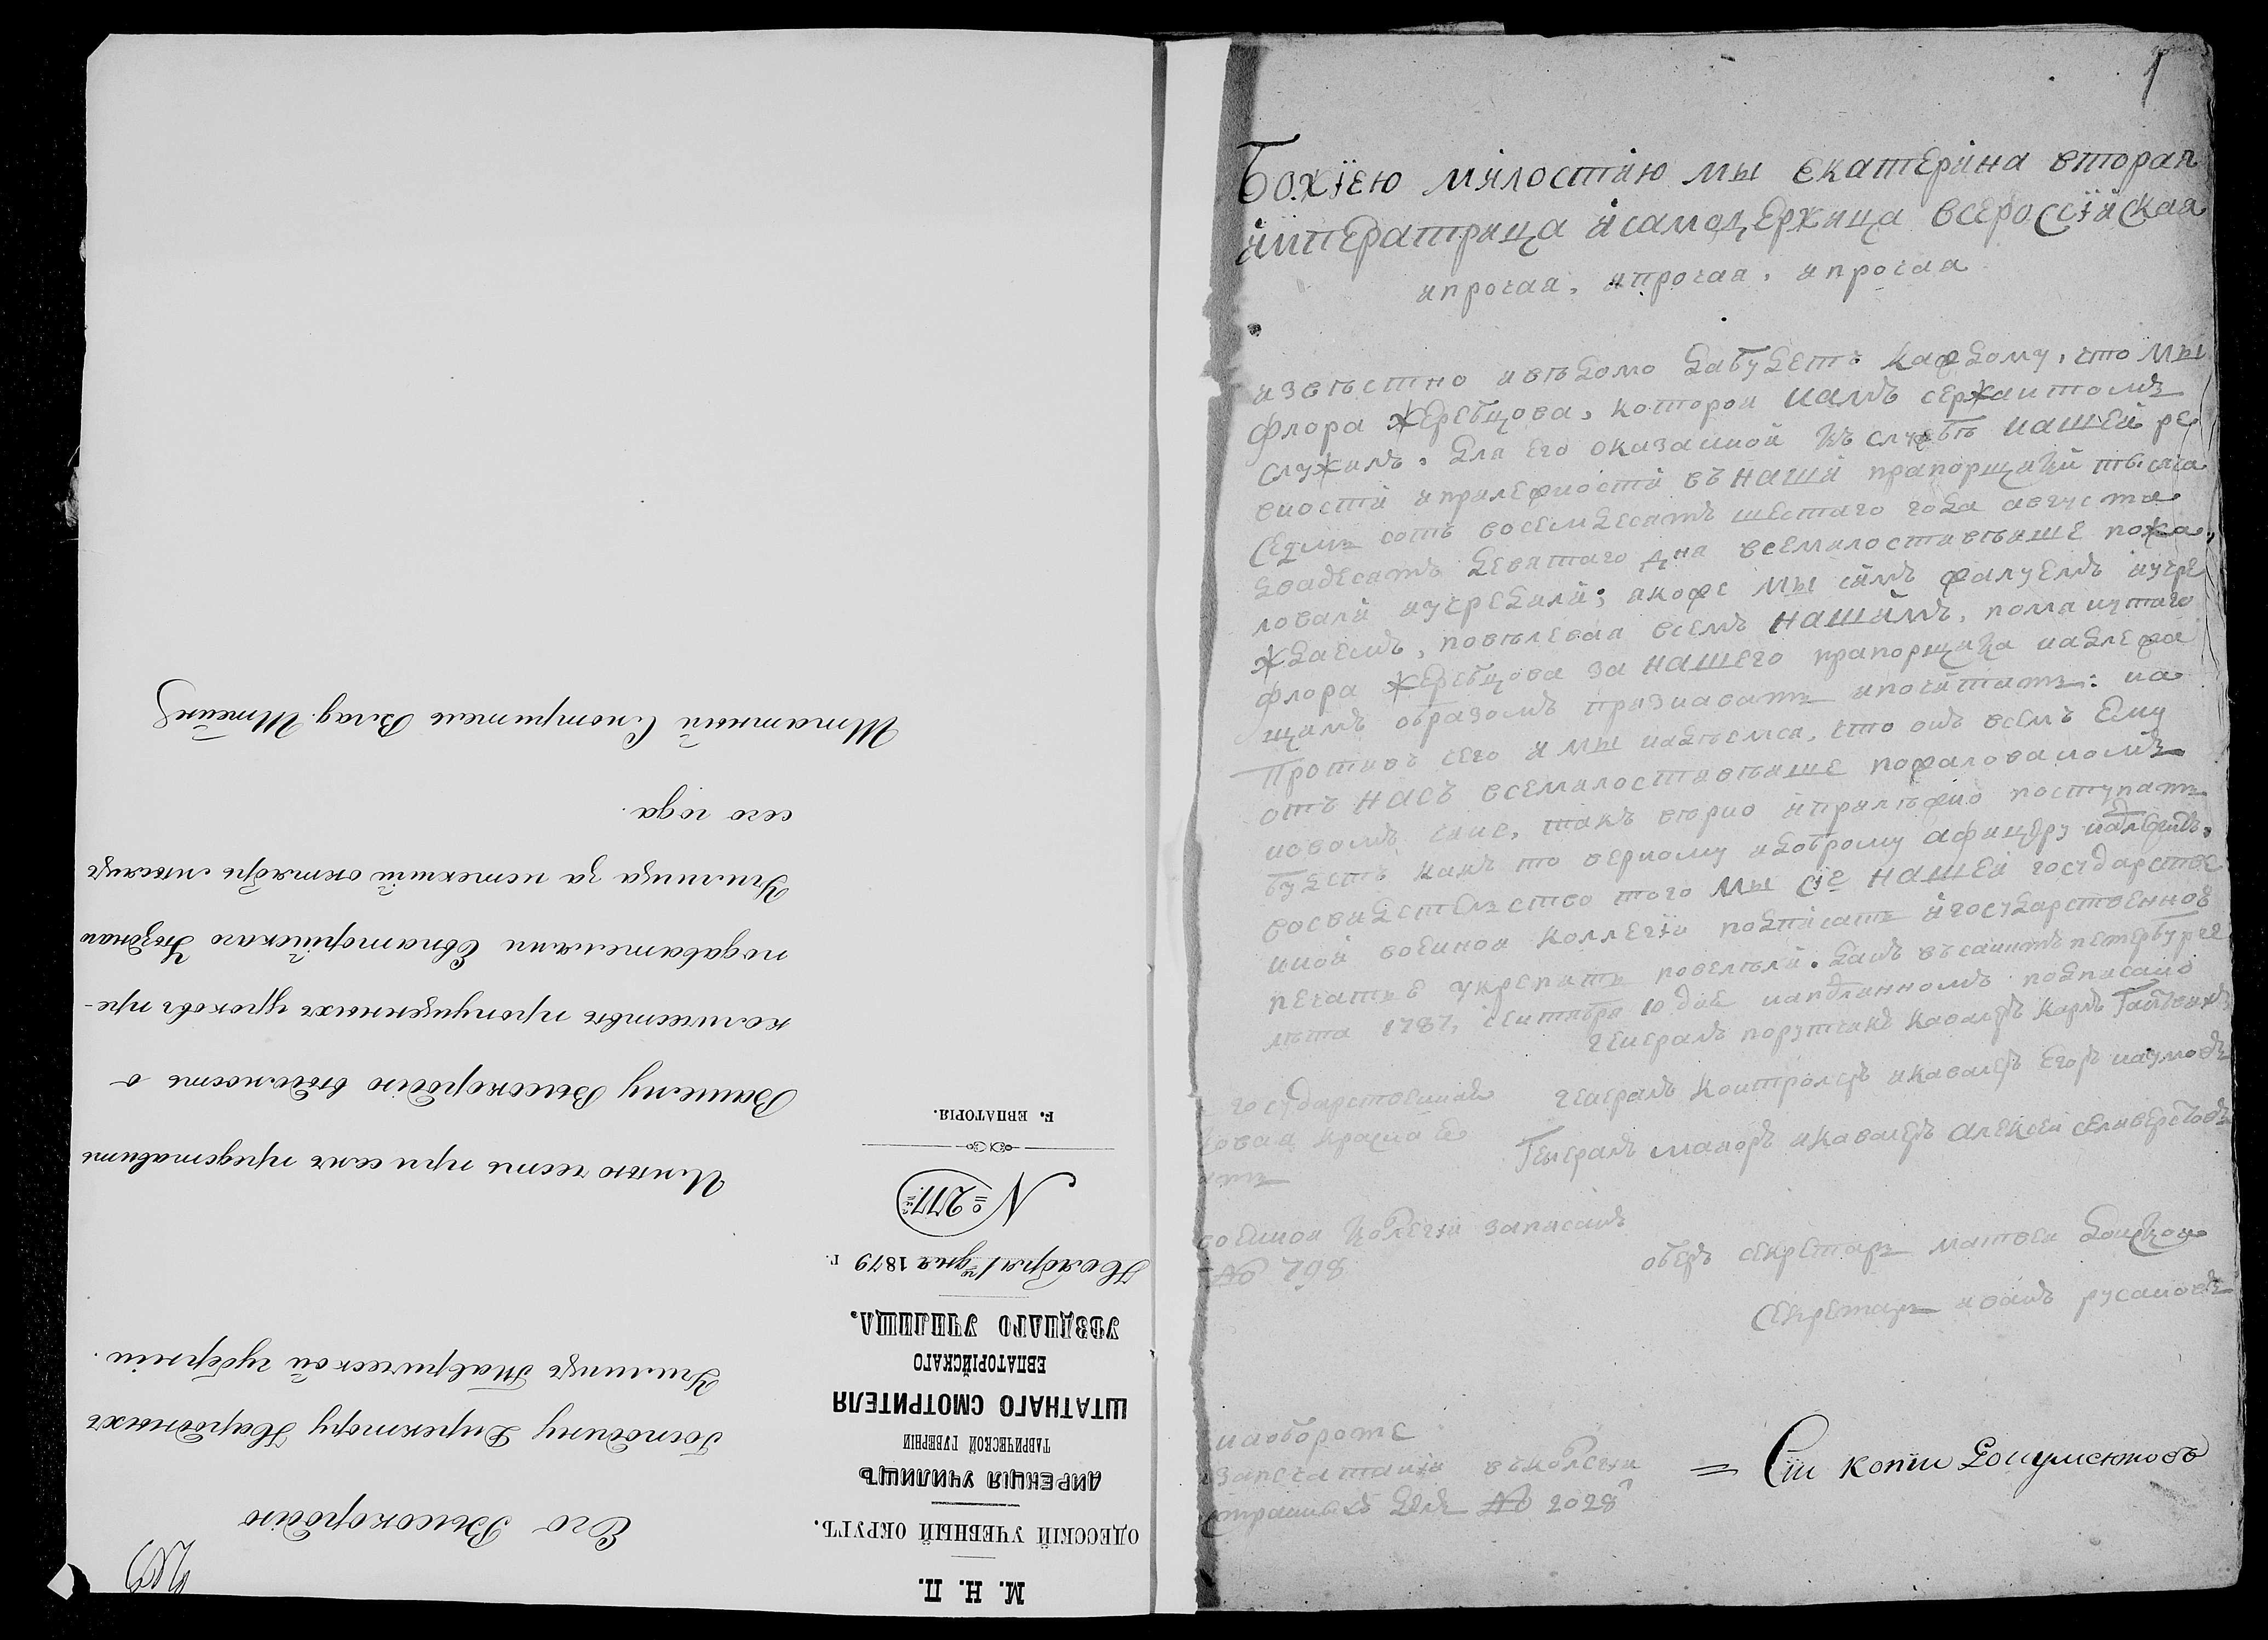 М. Н. П.
ОДЕССКІЙ УЧЕБНЫЙ ОКРУГЪ.
ДИРЕКЦІЯ УЧИЛИЩЪ
ТАВРИЧЕСКОЙ ГУБЕРНІИ
ШТАТНАГО СМОТРИТЕЛЯ
ЕВПАТОРІЙСКАГО
УѢЗДНАГО УЧИЛИЩА.
Ноября 1го дня 1879 г.
№ 277.
Г. ЕВПАТОРІЯ.
Его Высокородію
Господину Директору Народныхъ
Училищъ Таврической губерніи.
Имѣю честь при семъ представить
Вашему Высокородію вѣдомость о
количествѣ пропущенныхъ уроковъ пре-
подавателями Евпаторійскаго Уѣзднаго
Училища за истекшій октябрь мѣсяцъ
сего года.
Штатный Смотритель Влад. Штейнъ
1
Божїею милостію мы екатеріна вторая
императрица исамодержица всероссїйская
ипрочая, ипрочая, ипрочая
извѣстно ивѣдомо дабудетъ каждому, что мы
флора жеребцова, которои намъ сержантомъ
служилъ, для его оказанной къ службѣ нашеи ре
вности иприлежности въ наши прапорщики тысяча
седмь сотъ восемдесятъ шестаго года августа
двадесятъ девятаго дня всемилостивѣише пожа,
ловали иучредили; якоже мы симъ жалуемъ иучре
ждаемъ, повѣлевая всемъ нашимъ, помянутаго
флора жеребцова за нашего прапорщика надлежа
щимъ образомъ признавать ипочитать: на
противъ сего и мы надѣемся, что онъ всемъ ему
отъ насъ всемилостивѣише пожалованомъ
новомъ чине, такъ вѣрно иприлѣжно поступать
будетъ какъ то верному идоброму афицеру надлежитъ,
восвидетельство того мы сїе нашеи государстве
нной военнои коллегїи подписать игосударственною
печатью укрепить повелѣли. данъ въсанктъ петербурге
лѣта 1787, сентября 10 дня наподлинномъ подписано
генералъ порутчикъ кавалеръ карлъ
государственная генералъ контролеръ икавалеръ егоръ наумовъ
Генералъ маиоръ икавалеръ алексеи селиверстовъ
военнои колегїи записанъ
№ 798
оберъ секретарь матвеи
секретарь иванъ русановъ
наобороте
запечатании въколегїи
№ 2028
= Сїи копїи